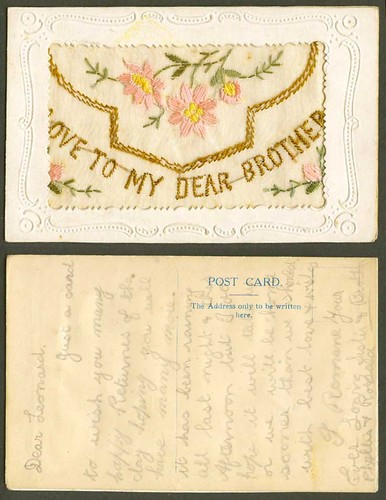 LOVE TO MY DEAR BROTHER
POST CARD.
The Address only to be written
here.
Dear Leonard.
Just a card
to wish you many
happy Returns of the
day hoping you will
have many more
it has been raining
all last night &
afternoon but I
hope it will
or we will be
sooner than
with best love &
I Remain Your
Ever Loving Sister &
Phyllis &